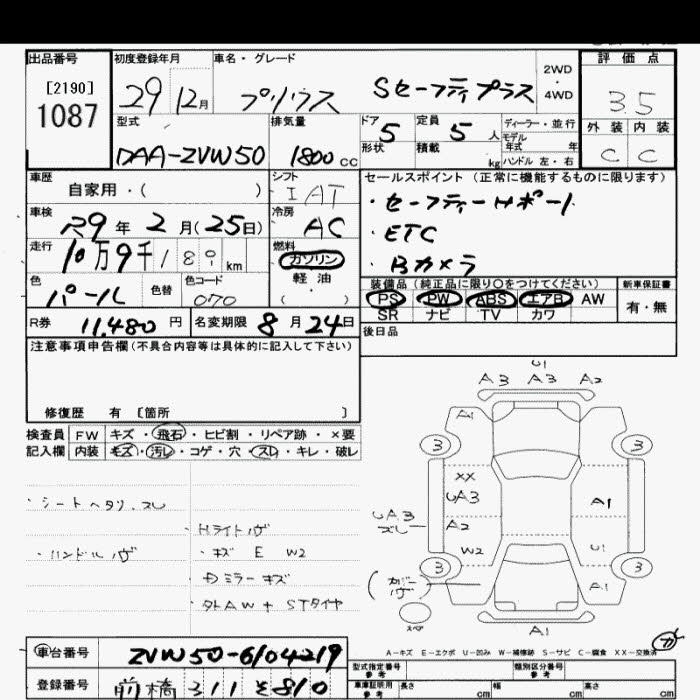 出品番号 初度登録年月 車名・グレード 評価点
[2190]
1087
29 12月 プリウス Sセーフティプラス 2WD・4WD 3.5
型式 排気量 ドア 5 定員 5人 ディーラー・並行 外装 内装
モデル年式 年
DAA-ZVW50 1800cc 形状 積載 kg ハンドル 左・右 C C
車歴 シフト セールスポイント (正常に機能するものに限ります)
自家用・( ) I AT
・セーフティーサポート
車検 冷房
R9年2月(25日) AC
・ETC
走行 燃料
10万9千189km ガソリン
・Bカメラ
軽油
色 色替 色コード
パール 070 ・( )
装備品 (純正品に限り〇をつけてください) 新車保証書
PS PW ABS エアB AW 有・無
SR ナビ TV カワ
R券 11,480円 名変期限 8月24日 後日品
注意事項申告欄(不具合内容等は具体的に記入して下さい)
修復歴 有 [箇所 ]
検査員 FW キズ・飛石・ヒビ割・リペア跡・×要
記入欄 内装 キズ・汚レ・コゲ・穴・スレ・キレ・破レ
・シートヘタリ.スレ
・Hライトヤケ
・ハンドルヤケ
・キズ E W2
・Dミラーキズ
・外AW+STタイヤ
U1
A3 A3 A2
A1
3 3
XX
UA3 A1
UA3 スレ A2
W2 U1
3 3
A1
スペア
A1
A-キズ E-エクボ U-凹み W-補修跡 S-サビ C-腐食 XX-交換済
車台番号 ZVW50-6104219
登録番号 前橋 311 そ 810
型式指定番号 参考 類別区分番号 参考
車庫証明用 参考 長さ cm 幅 cm 高さ cm